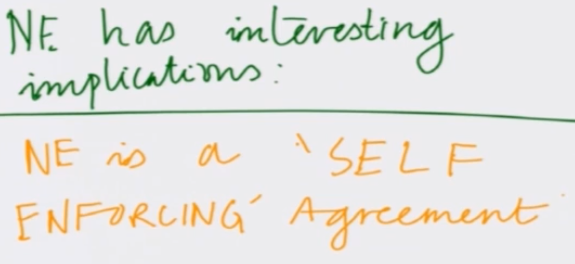 NE has interesting
implications:
NE is a 'SELF
ENFORCING' Agreement